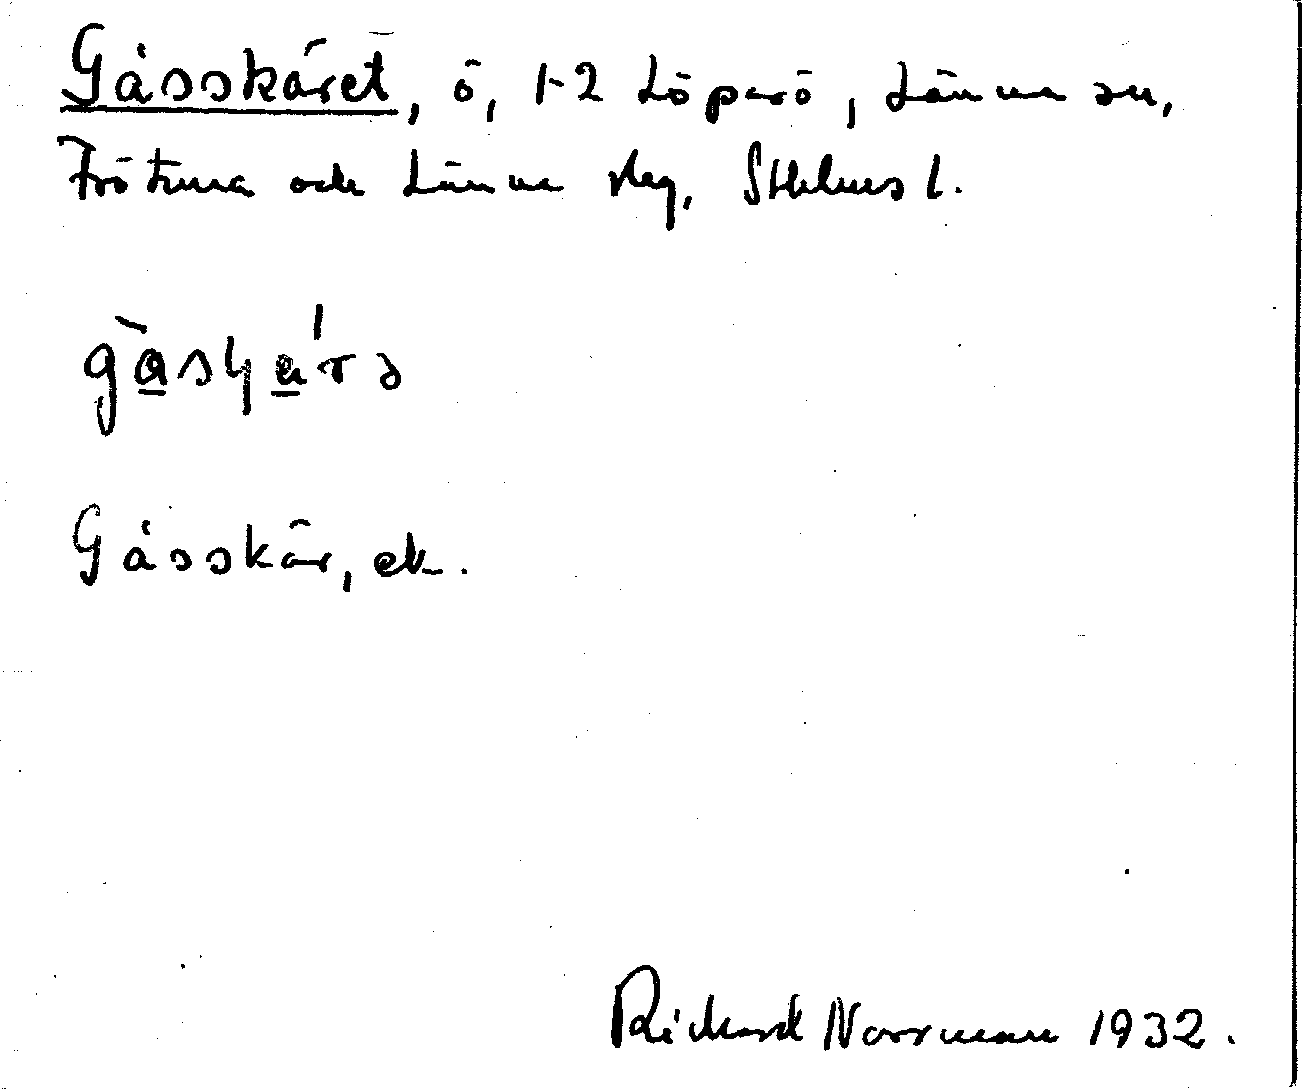 Gåsskäret, ö, 1-2 Löparö, Länna sn,
Frötuna och Länna slg, Sthlms l.
Gåsskär, ek.
Richard Norrman 1932.